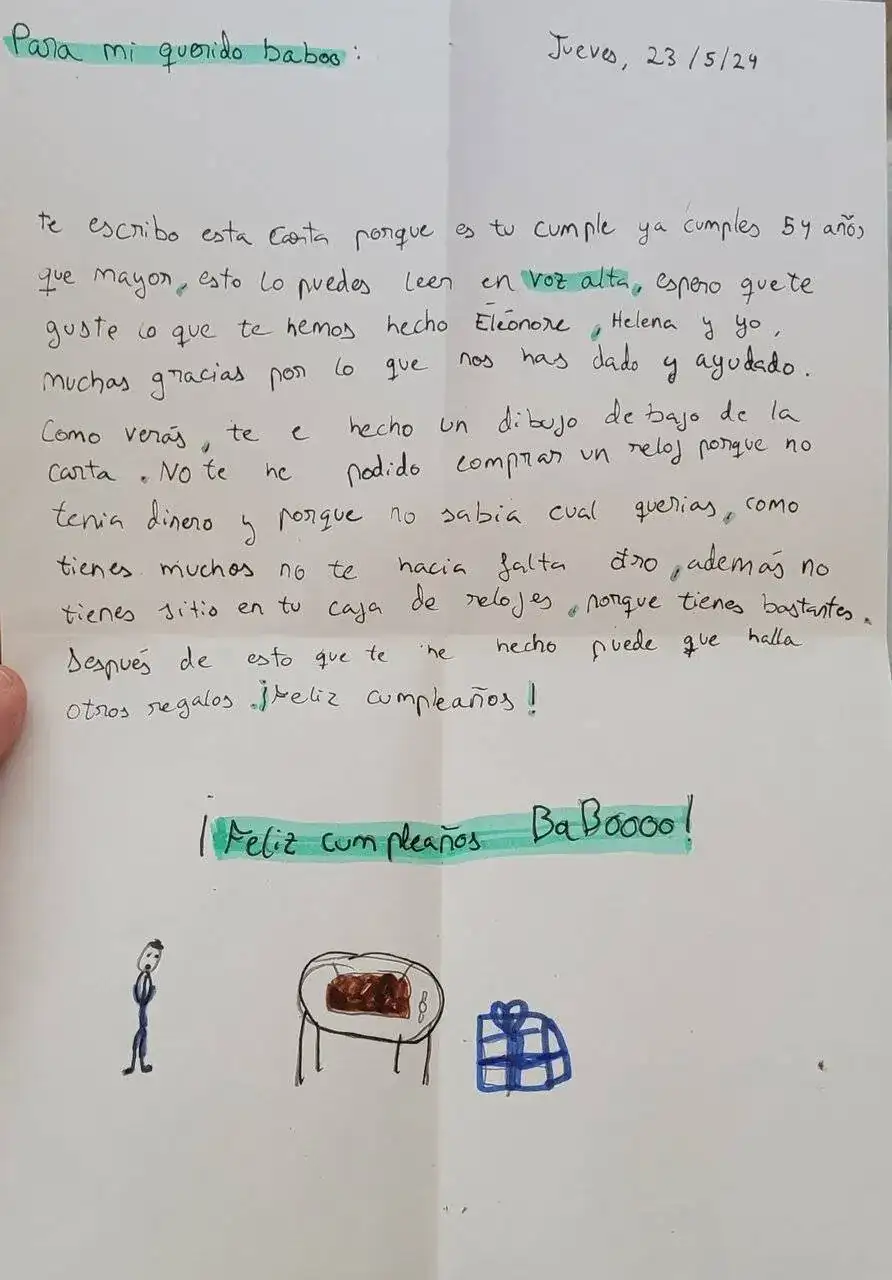 Para mi querido baboo:
Jueves, 23/5/24
te escribo esta carta porque es tu cumple ya cumples 54 años
que mayor, esto lo puedes leer en voz alta, espero que te
guste lo que te hemos hecho Eléonore, Helena y yo,
muchas gracias por lo que nos has dado y ayudado.
Como verás, te e hecho un dibujo de bajo de la
carta. No te he podido comprar un reloj porque no
tenia dinero y porque no sabia cual querias, como
tienes muchos no te hacia falta otro, además no
tienes sitio en tu caja de relojes, porque tienes bastantes.
Después de esto que te he hecho puede que halla
otros regalos. ¡Feliz cumpleaños!
¡Feliz cumpleaños BaBoooo!